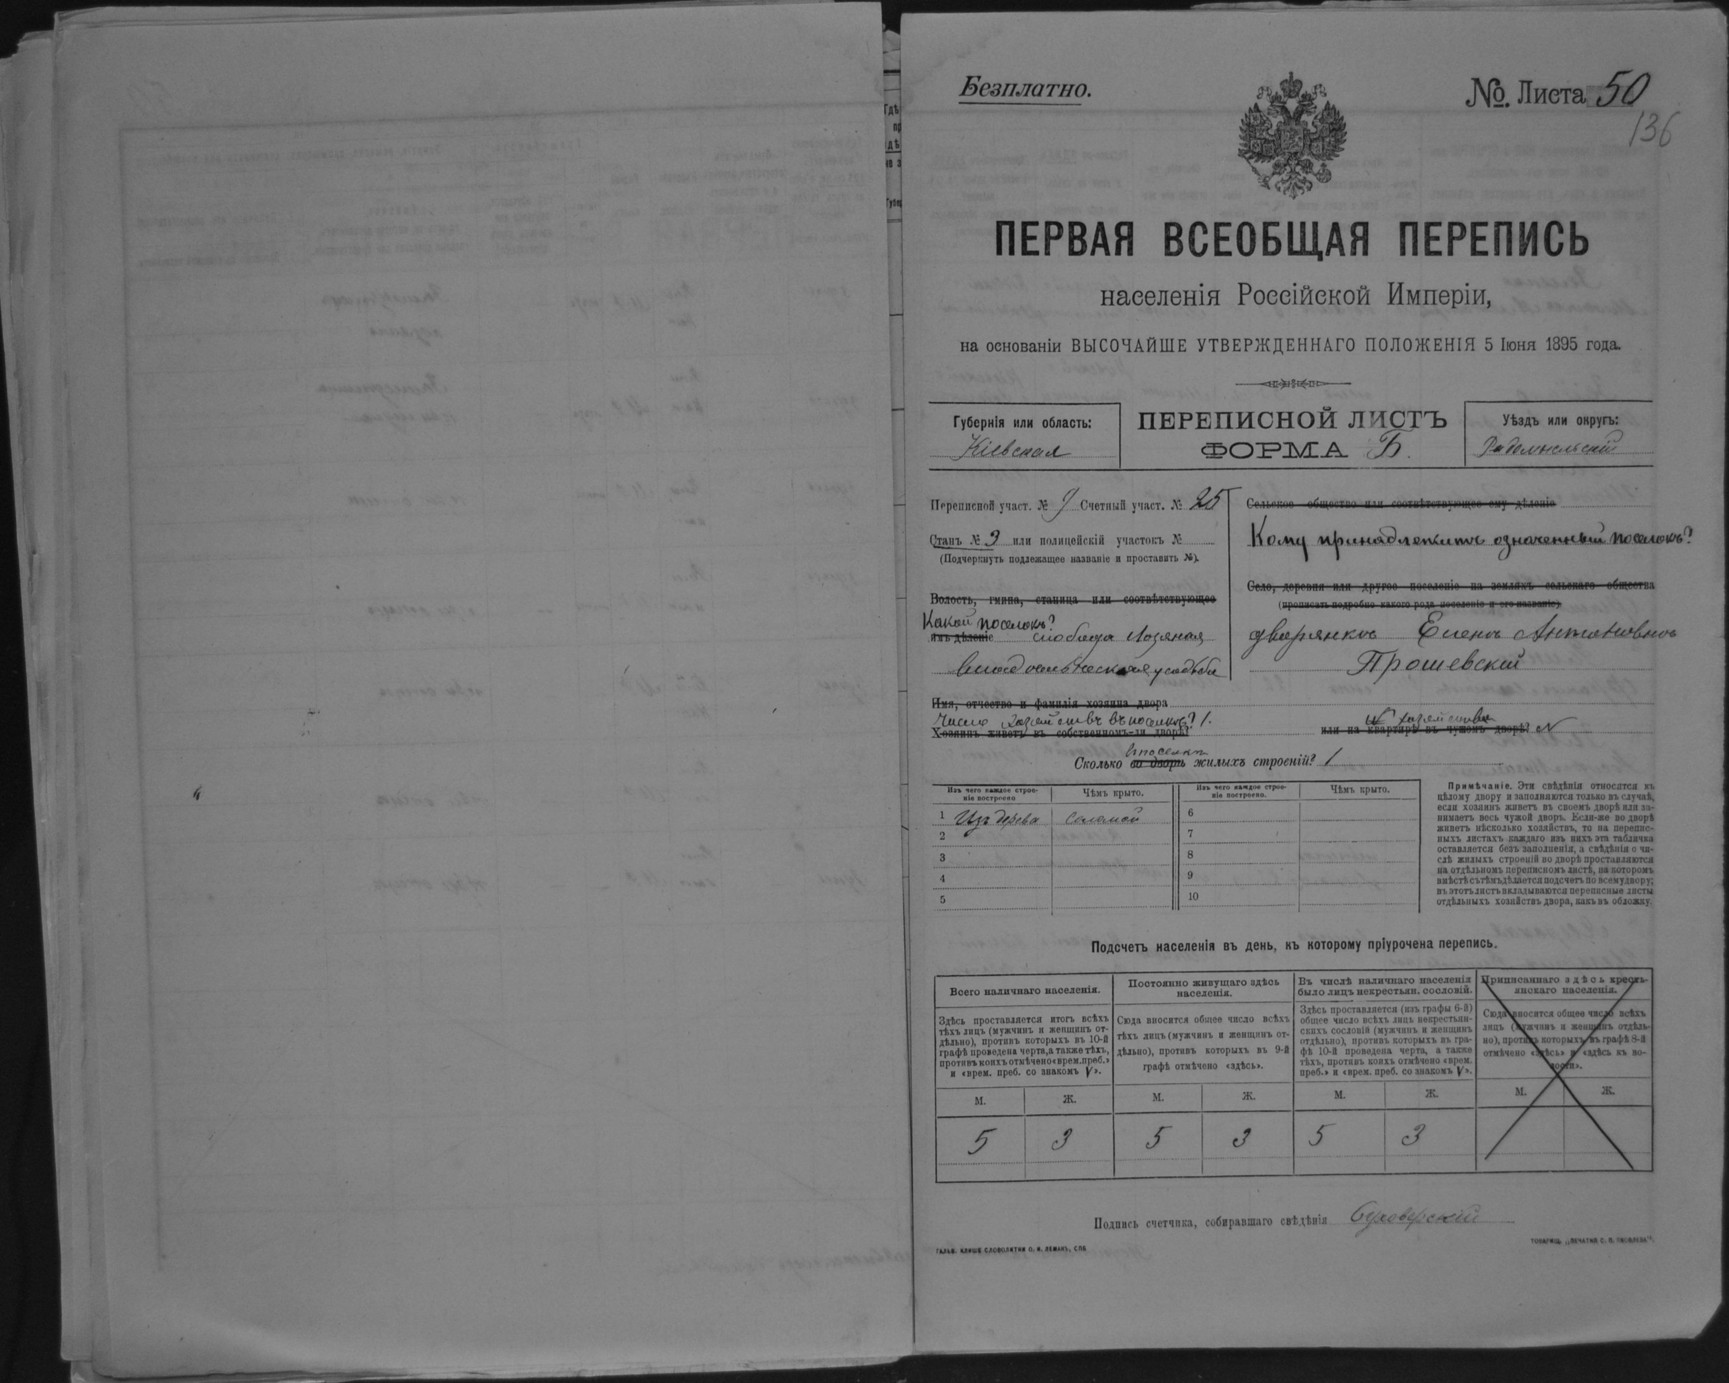 Безплатно.
№. Листа 50
136
ПЕРВАЯ ВСЕОБЩАЯ ПЕРЕПИСЬ
населенія Россійской Имперіи,
на основаніи ВЫСОЧАЙШЕ УТВЕРЖДЕННАГО ПОЛОЖЕНІЯ 5 Іюня 1895 года.
Губернія или область:
Кіевская
ПЕРЕПИСНОЙ ЛИСТЪ
ФОРМА Б.
Уѣздъ или округъ:
Радомысльскій
Переписной участ. № 9 Счетный участ. № 25
Станъ № 3 или полицейскій участокъ №
(Подчеркнуть подлежащее названіе и проставить №).
Волость, гмина, станица или соотвѣтствующее
Какой поселокъ?
имъ дѣленіе слобода Лозяная
усадьба
Сельское общество или соотвѣтствующее ему дѣленіе
Кому принадлежитъ означенный поселокъ?
Село, деревня или другое поселеніе на земляхъ сельскаго общества
(прописать подробно какого рода поселеніе и его названіе)
дворянкѣ Еленѣ Антоновнѣ
Прошевскій
Имя, отчество и фамилія хозяина двора
Число хозяйствъ въ поселкѣ? 1.
Хозяинъ живетъ въ собственномъ-ли дворѣ?
№ хозяйства
или на квартирѣ въ чужомъ дворѣ? №
въ поселкѣ
Сколько во дворѣ жилыхъ строеній? 1
Изъ чего каждое строеніе построено
Чѣмъ крыто.
Изъ чего каждое строеніе построено.
Чѣмъ крыто.
1 Изъ дерева соломой
2
3
4
5
6
7
8
9
10
Примѣчаніе. Эти свѣдѣнія относятся къ
цѣлому двору и заполняются только въ случаѣ,
если хозяинъ живетъ въ своемъ дворѣ или занимаетъ
весь чужой дворъ. Если-же во дворѣ
живетъ нѣсколько хозяйствъ, то на переписныхъ
листахъ каждаго изъ нихъ эта табличка
оставляется безъ заполненія, а свѣдѣнія о числѣ
жилыхъ строеній во дворѣ проставляются
на отдѣльномъ переписномъ листѣ, на которомъ
вмѣстѣ съ тѣмъ дѣлается подсчетъ по всему двору;
въ этотъ листъ вкладываются переписные листы
отдѣльныхъ хозяйствъ двора, какъ въ обложку.
Подсчетъ населенія въ день, къ которому пріурочена перепись.
Всего наличнаго населенія.
Здѣсь проставляется итогъ всѣхъ
тѣхъ лицъ (мужчинъ и женщинъ отдѣльно),
противъ которыхъ въ 10-й
графѣ проведена черта, а также тѣхъ,
противъ коихъ отмѣчено «врем. преб.»
и «врем. преб. со знакомъ V».
Постоянно живущаго здѣсь
населенія.
Сюда вносится общее число всѣхъ
тѣхъ лицъ (мужчинъ и женщинъ отдѣльно),
противъ которыхъ въ 9-й
графѣ отмѣчено «здѣсь».
Въ числѣ наличнаго населенія
было лицъ некрестьян. сословій.
Здѣсь проставляется (изъ графы 6-й)
общее число всѣхъ лицъ некрестьянскихъ
сословій (мужчинъ и женщинъ
отдѣльно), противъ которыхъ въ графѣ
10-й проведена черта, а также
тѣхъ, противъ коихъ отмѣчено «врем.
преб.» и «врем. преб. со знакомъ V».
Приписаннаго здѣсь крестьянскаго
населенія.
Сюда вносится общее число всѣхъ
лицъ (мужчинъ и женщинъ отдѣльно),
противъ которыхъ въ графѣ 8-й
отмѣчено «здѣсь» и «здѣсь къ волости».
М. Ж. М. Ж. М. Ж. М. Ж.
5 3 5 3 5 3
Подпись счетчика, собиравшаго свѣдѣнія
ГАЛЬВ. КЛИШЕ СЛОВОЛИТНИ О. И. ЛЕМАНЪ, СПБ
ТОВАРИЩ. „ПЕЧАТНЯ С. П. ЯКОВЛЕВА".